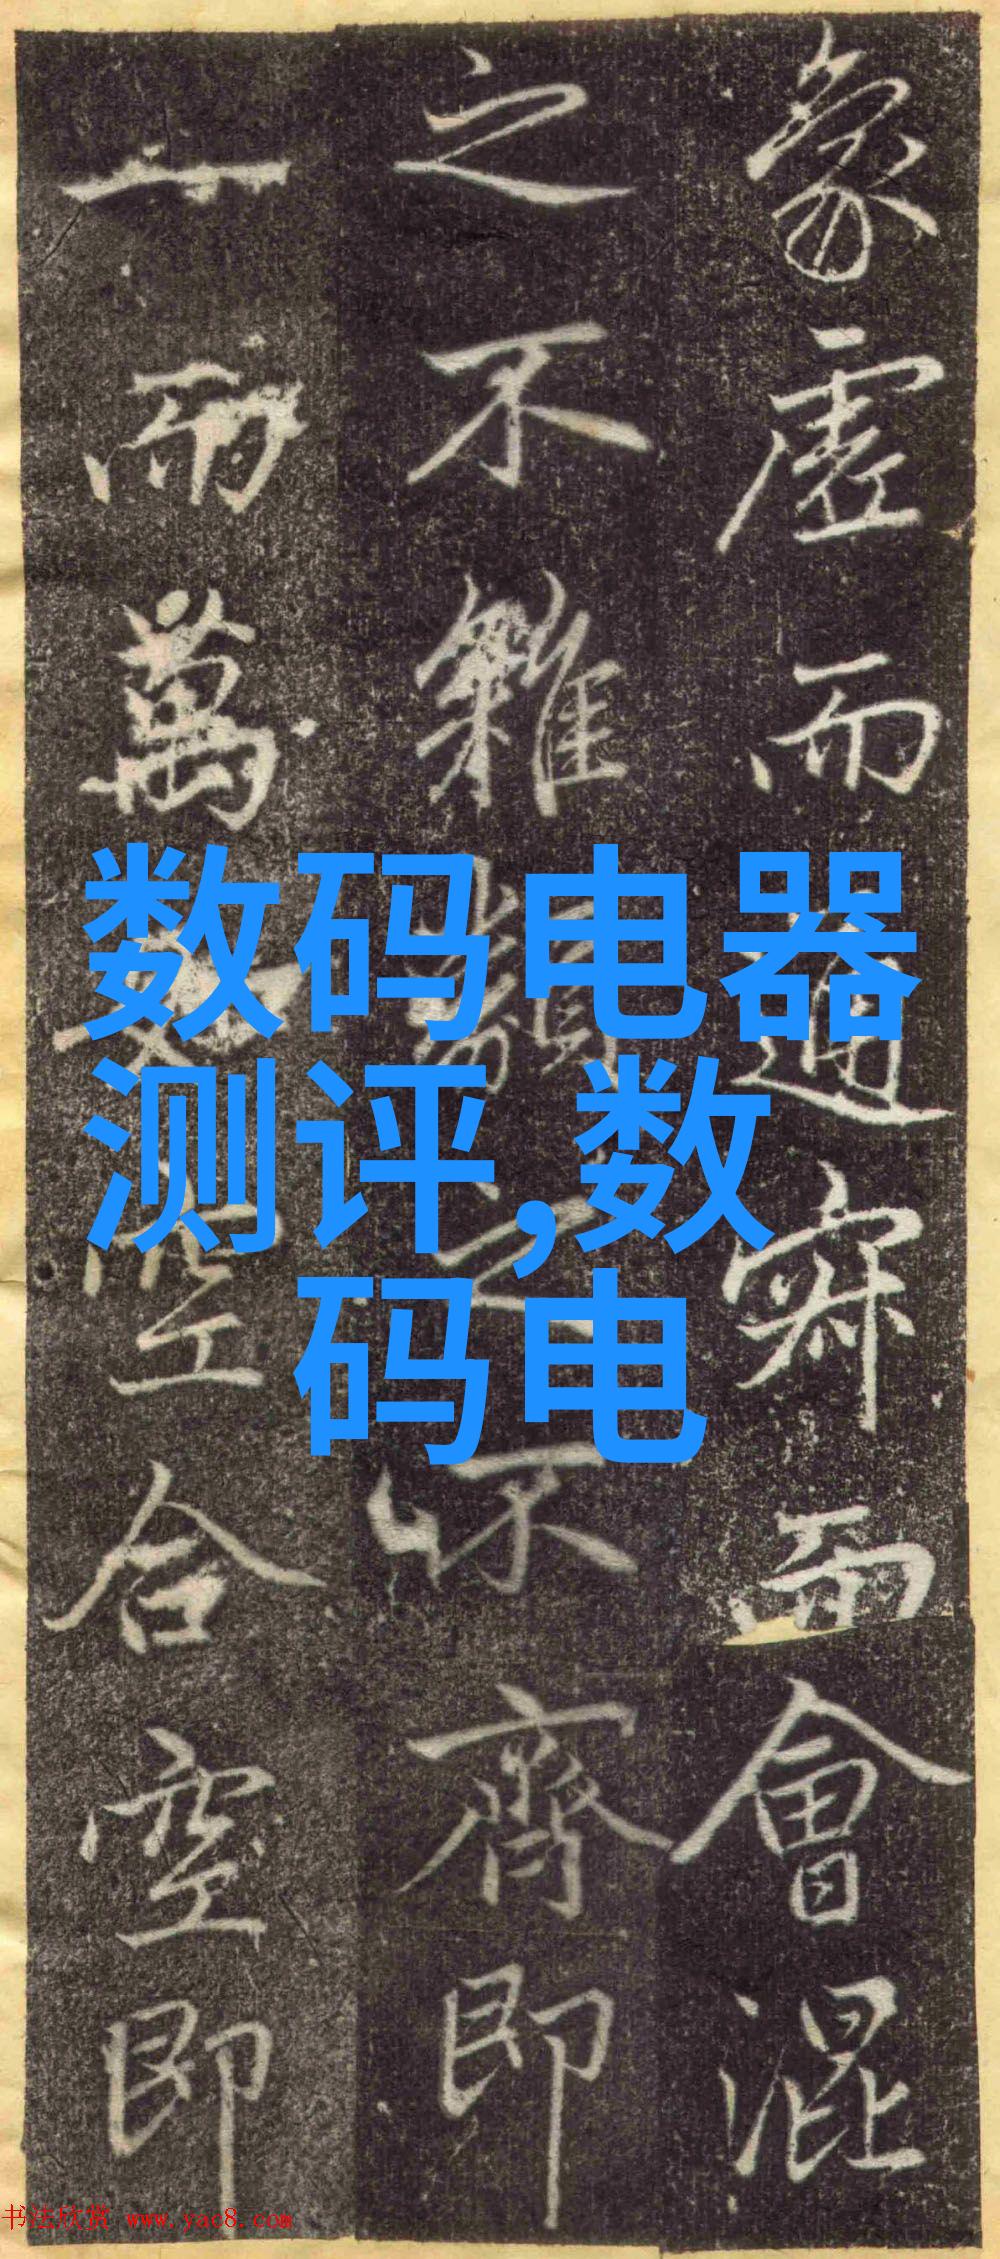 象虛而
通寂而會混
之不雜
類之不齊即
一而萬
殊空合空即
数码电器
测评,数
码电
书法欣赏 www.yac8.com